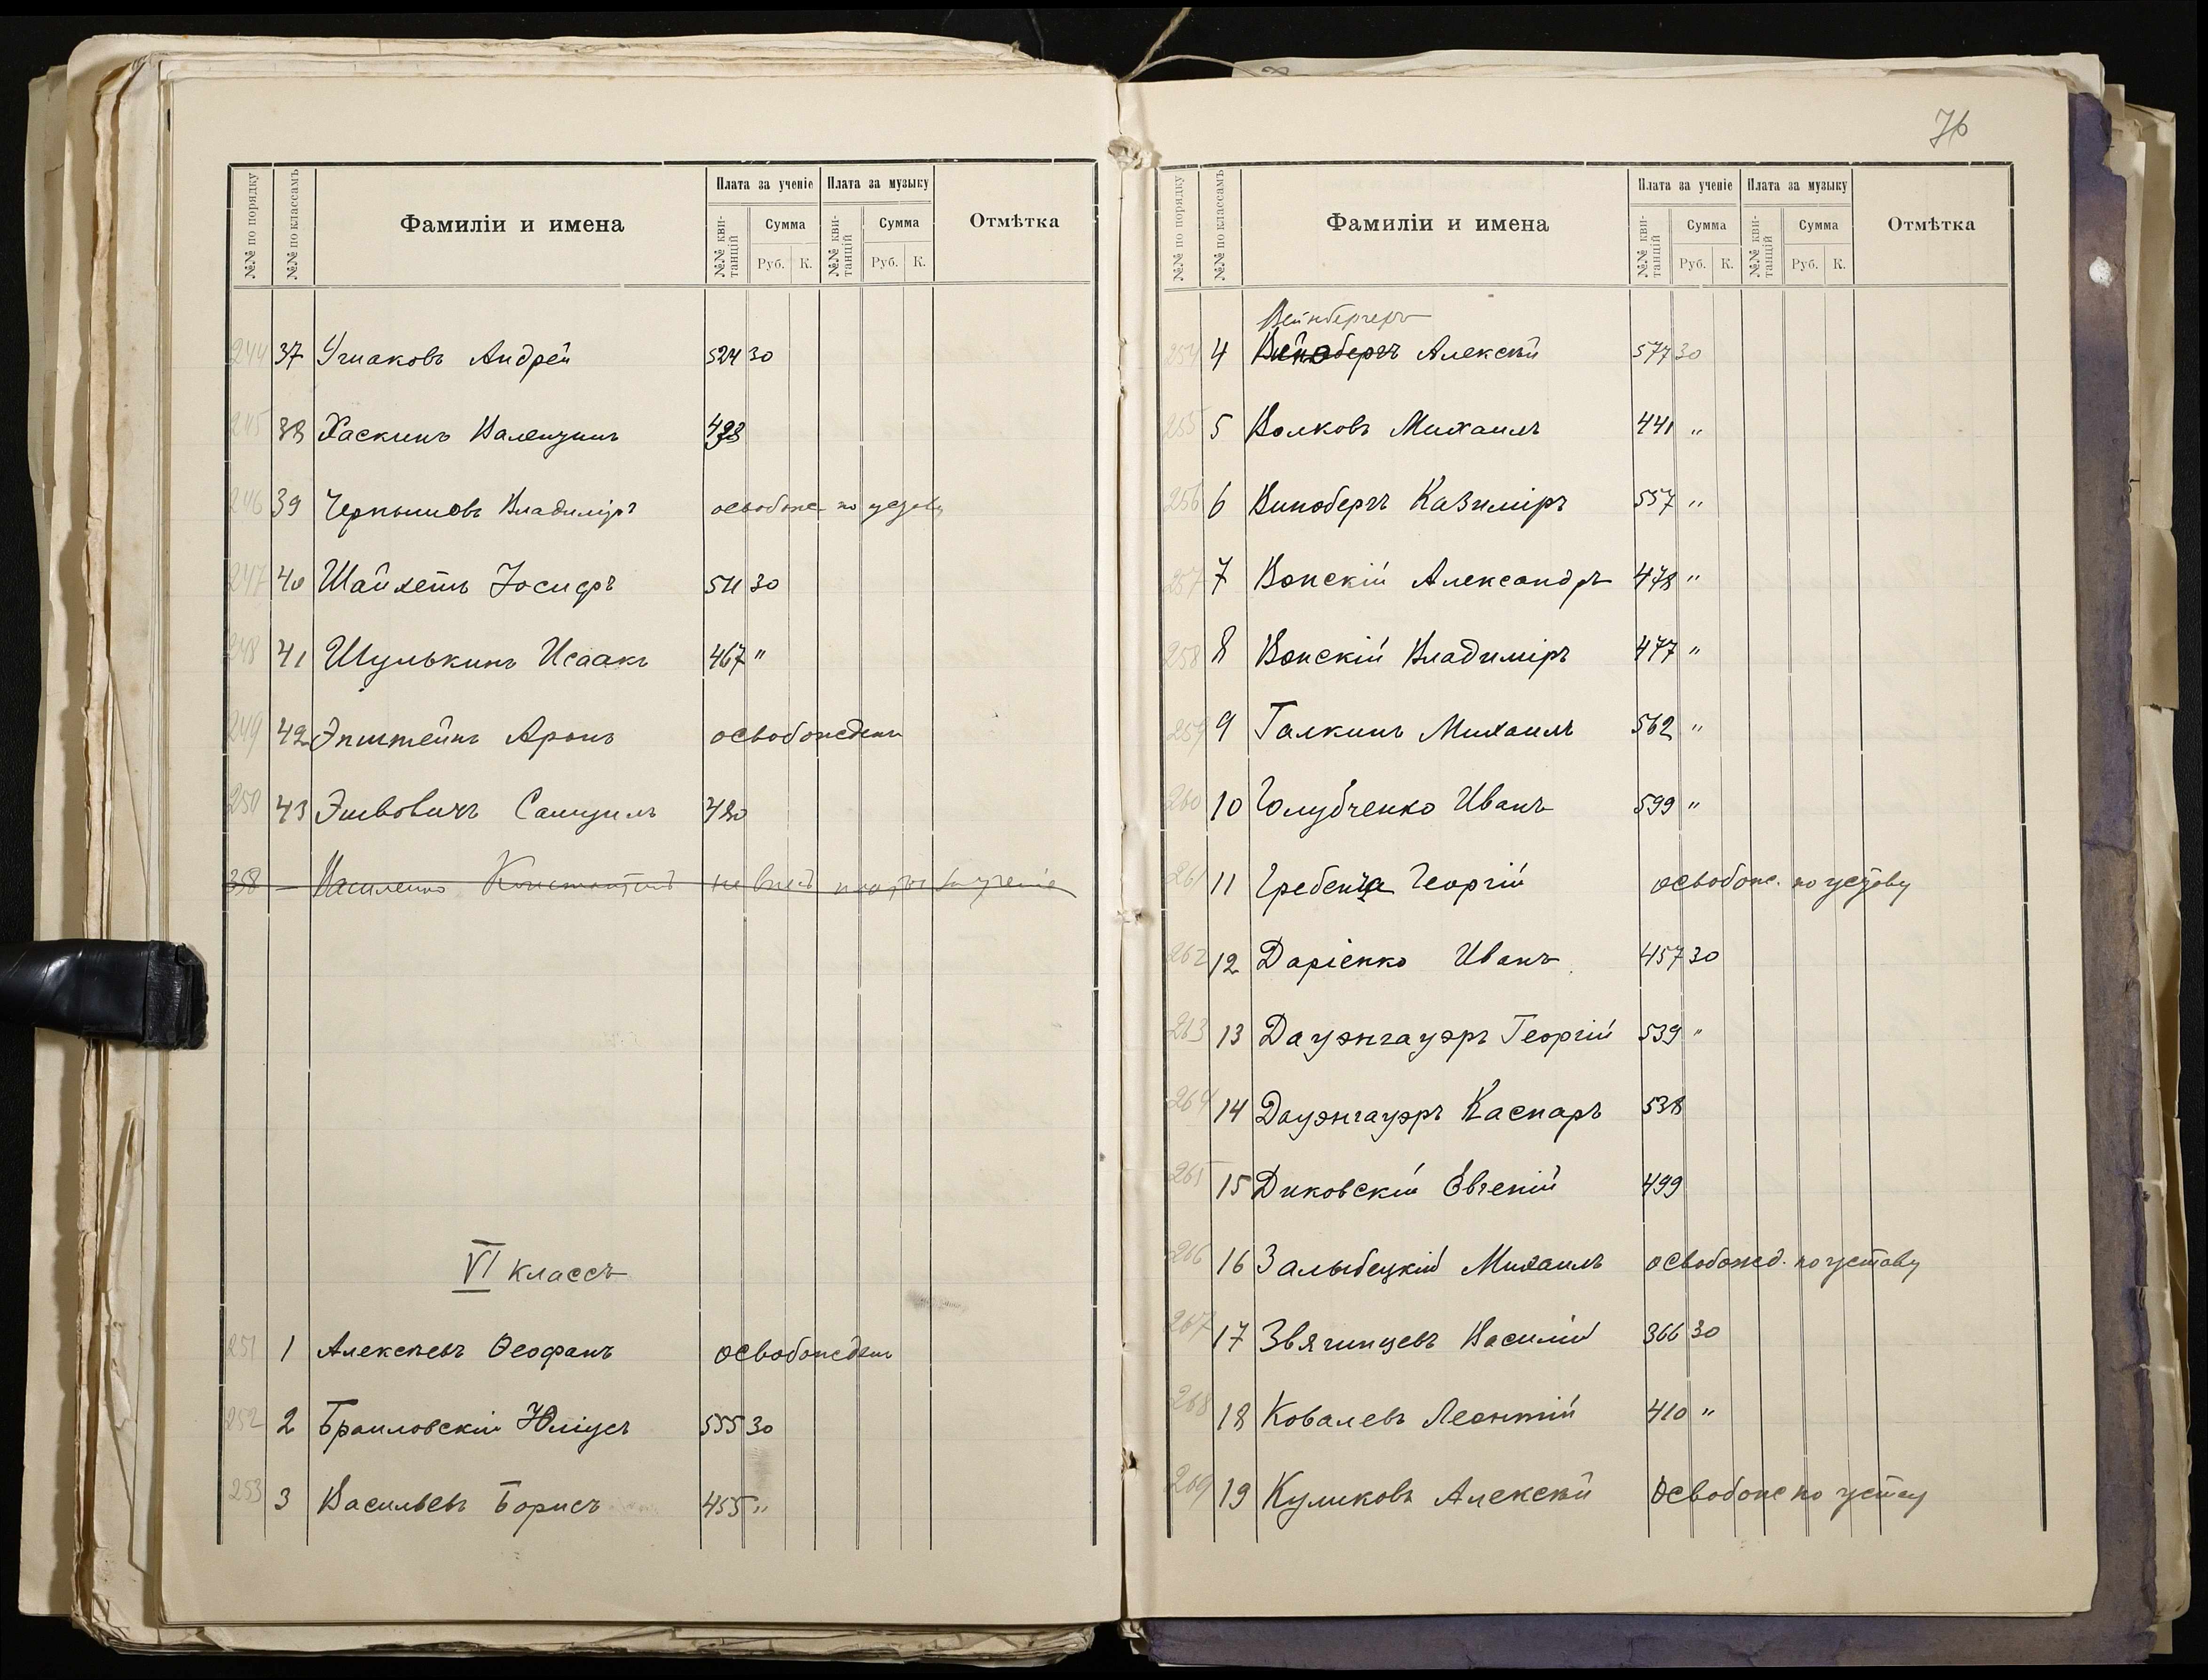 №№ по порядку №№ по классамъ Фамиліи и имена Плата за ученіе Плата за музыку Отмѣтка
№№ кви-танцій Сумма №№ кви-танцій Сумма
Руб. К. Руб. К.
244 37 Ушаковъ Андрей 524 30
245 38 Хаскинъ Валентинъ
246 39 Чернышовъ Владиміръ освобожд. по уставу
247 40 Шайхетъ Іосифъ 511 30
248 41 Шулькинъ Исаакъ 467 "
249 42 Эпштейнъ Аронъ освобожденъ
250 43 Самуилъ 480
358 — Василенко Константинъ не внесъ платы за ученіе
VI классъ
251 1 Алексѣевъ Ѳеофанъ освобожденъ
252 2 Браиловскій Юліусъ 555 30
253 3 Васильевъ Борисъ 455 "
76
№№ по порядку №№ по классамъ Фамиліи и имена Плата за ученіе Плата за музыку Отмѣтка
№№ кви-танцій Сумма №№ кви-танцій Сумма
Руб. К. Руб. К.
Вейнбергеръ
254 4 Алексѣй 577 30
255 5 Волковъ Михаилъ 441 "
256 6 Винобергъ Казиміръ 557 "
257 7 Вонскій Александръ 478 "
258 8 Вонскій Владиміръ 477 "
259 9 Галкинъ Михаилъ 562 "
260 10 Голубченко Иванъ 599 "
261 11 Гребенча Георгій освобожд. по уставу
262 12 Даріенко Иванъ 457 30
263 13 Дауэнгауэръ Георгій 539 "
264 14 Дауэнгауэръ Каспаръ 538
265 15 Диковскій Евгеній 499
266 16 Залыбецкій Михаилъ освобожд. по уставу
267 17 Звягинцевъ Василій 366 30
268 18 Ковалевъ Леонтій 410 "
269 19 Куликовъ Алексѣй Освобожд по уставу